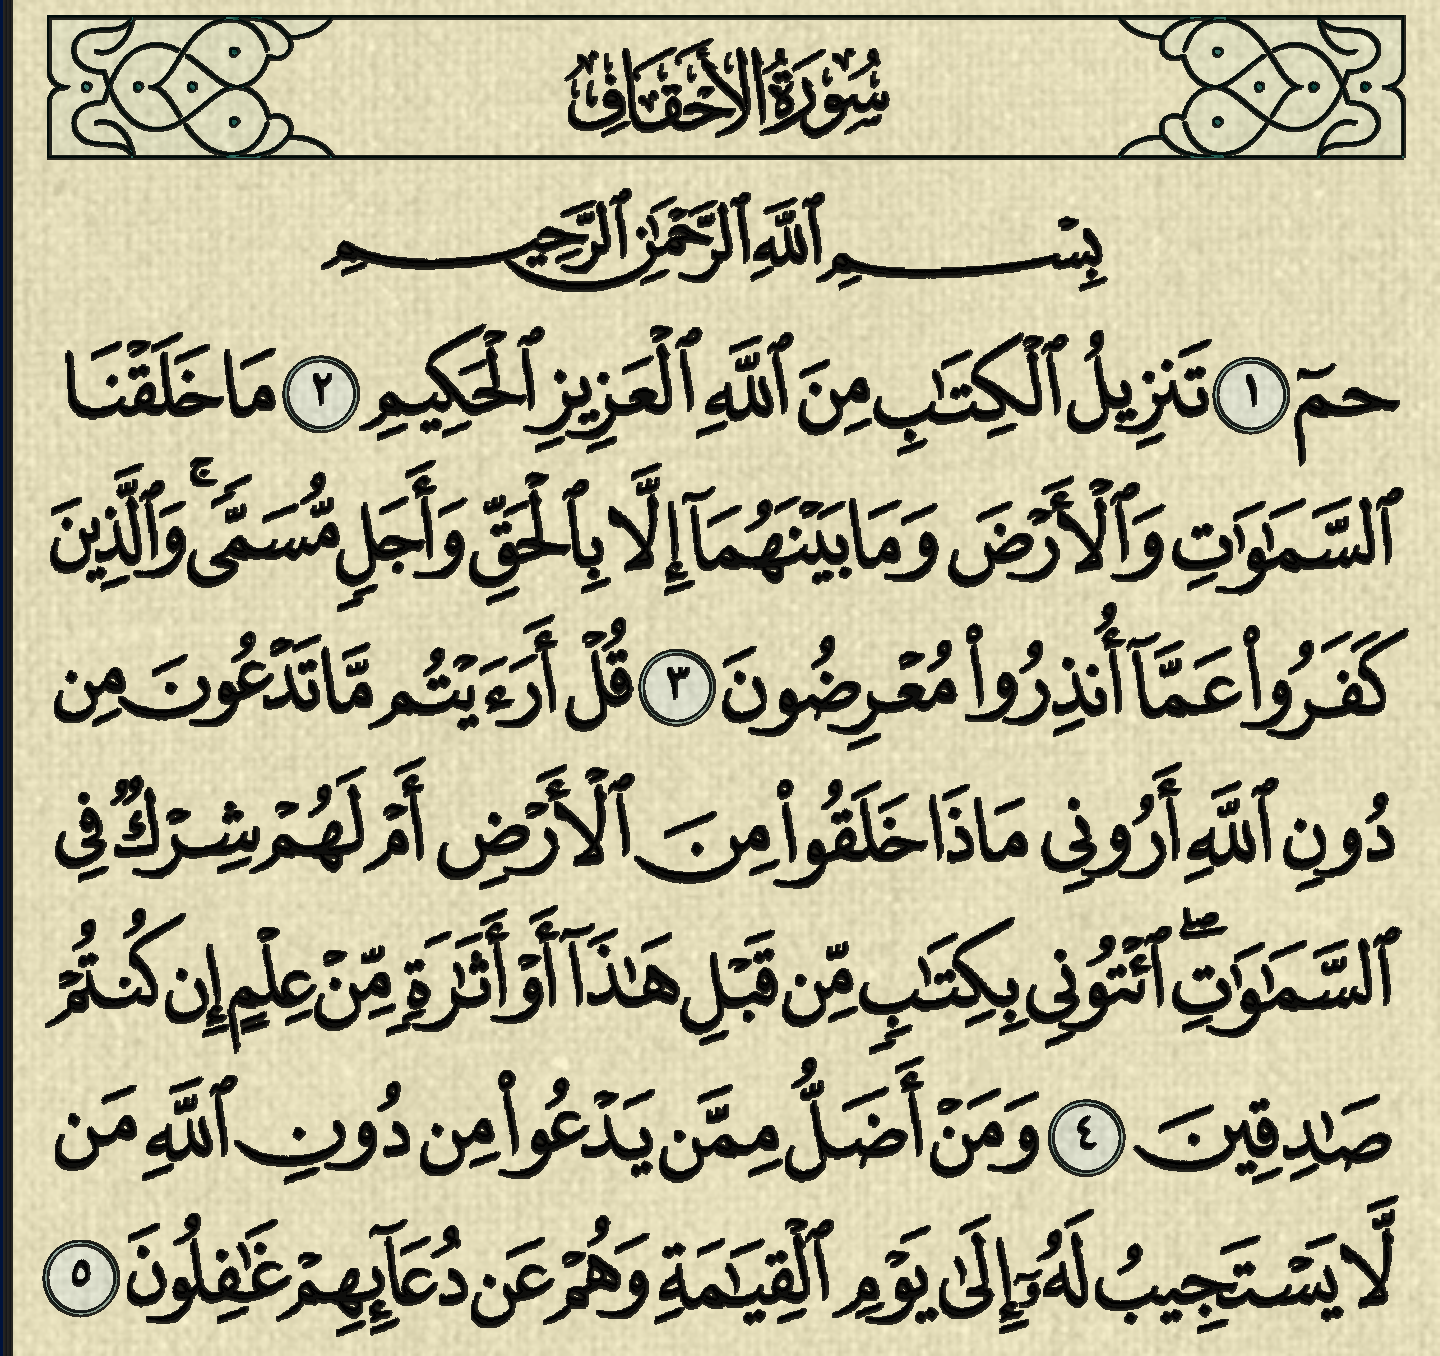 سُورَةُ الأَحْقَافِ
بِسْمِ ٱللَّهِ ٱلرَّحْمَٰنِ ٱلرَّحِيمِ
حمٓ ١ تَنزِيلُ ٱلْكِتَٰبِ مِنَ ٱللَّهِ ٱلْعَزِيزِ ٱلْحَكِيمِ ٢ مَا خَلَقْنَا
ٱلسَّمَٰوَٰتِ وَٱلْأَرْضَ وَمَا بَيْنَهُمَآ إِلَّا بِٱلْحَقِّ وَأَجَلٍ مُّسَمًّى ۚ وَٱلَّذِينَ
كَفَرُوا۟ عَمَّآ أُنذِرُوا۟ مُعْرِضُونَ ٣ قُلْ أَرَءَيْتُم مَّا تَدْعُونَ مِن
دُونِ ٱللَّهِ أَرُونِى مَاذَا خَلَقُوا۟ مِنَ ٱلْأَرْضِ أَمْ لَهُمْ شِرْكٌ فِى
ٱلسَّمَٰوَٰتِ ۖ ٱئْتُونِى بِكِتَٰبٍ مِّن قَبْلِ هَٰذَآ أَوْ أَثَٰرَةٍ مِّنْ عِلْمٍ إِن كُنتُمْ
صَٰدِقِينَ ٤ وَمَنْ أَضَلُّ مِمَّن يَدْعُوا۟ مِن دُونِ ٱللَّهِ مَن
لَّا يَسْتَجِيبُ لَهُۥٓ إِلَىٰ يَوْمِ ٱلْقِيَٰمَةِ وَهُمْ عَن دُعَآئِهِمْ غَٰفِلُونَ ٥